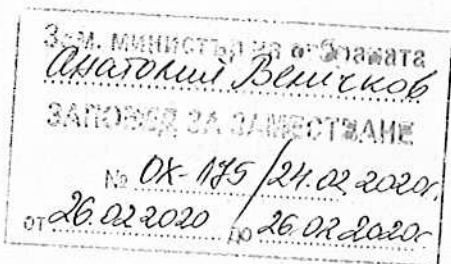 Зам. министър на отбраната
Анатолий Величков
ЗАПОВЕД ЗА ЗАМЕСТВАНЕ
№ ОХ-175/24.02.2020г.
от 26.02.2020 до 26.02.2020г